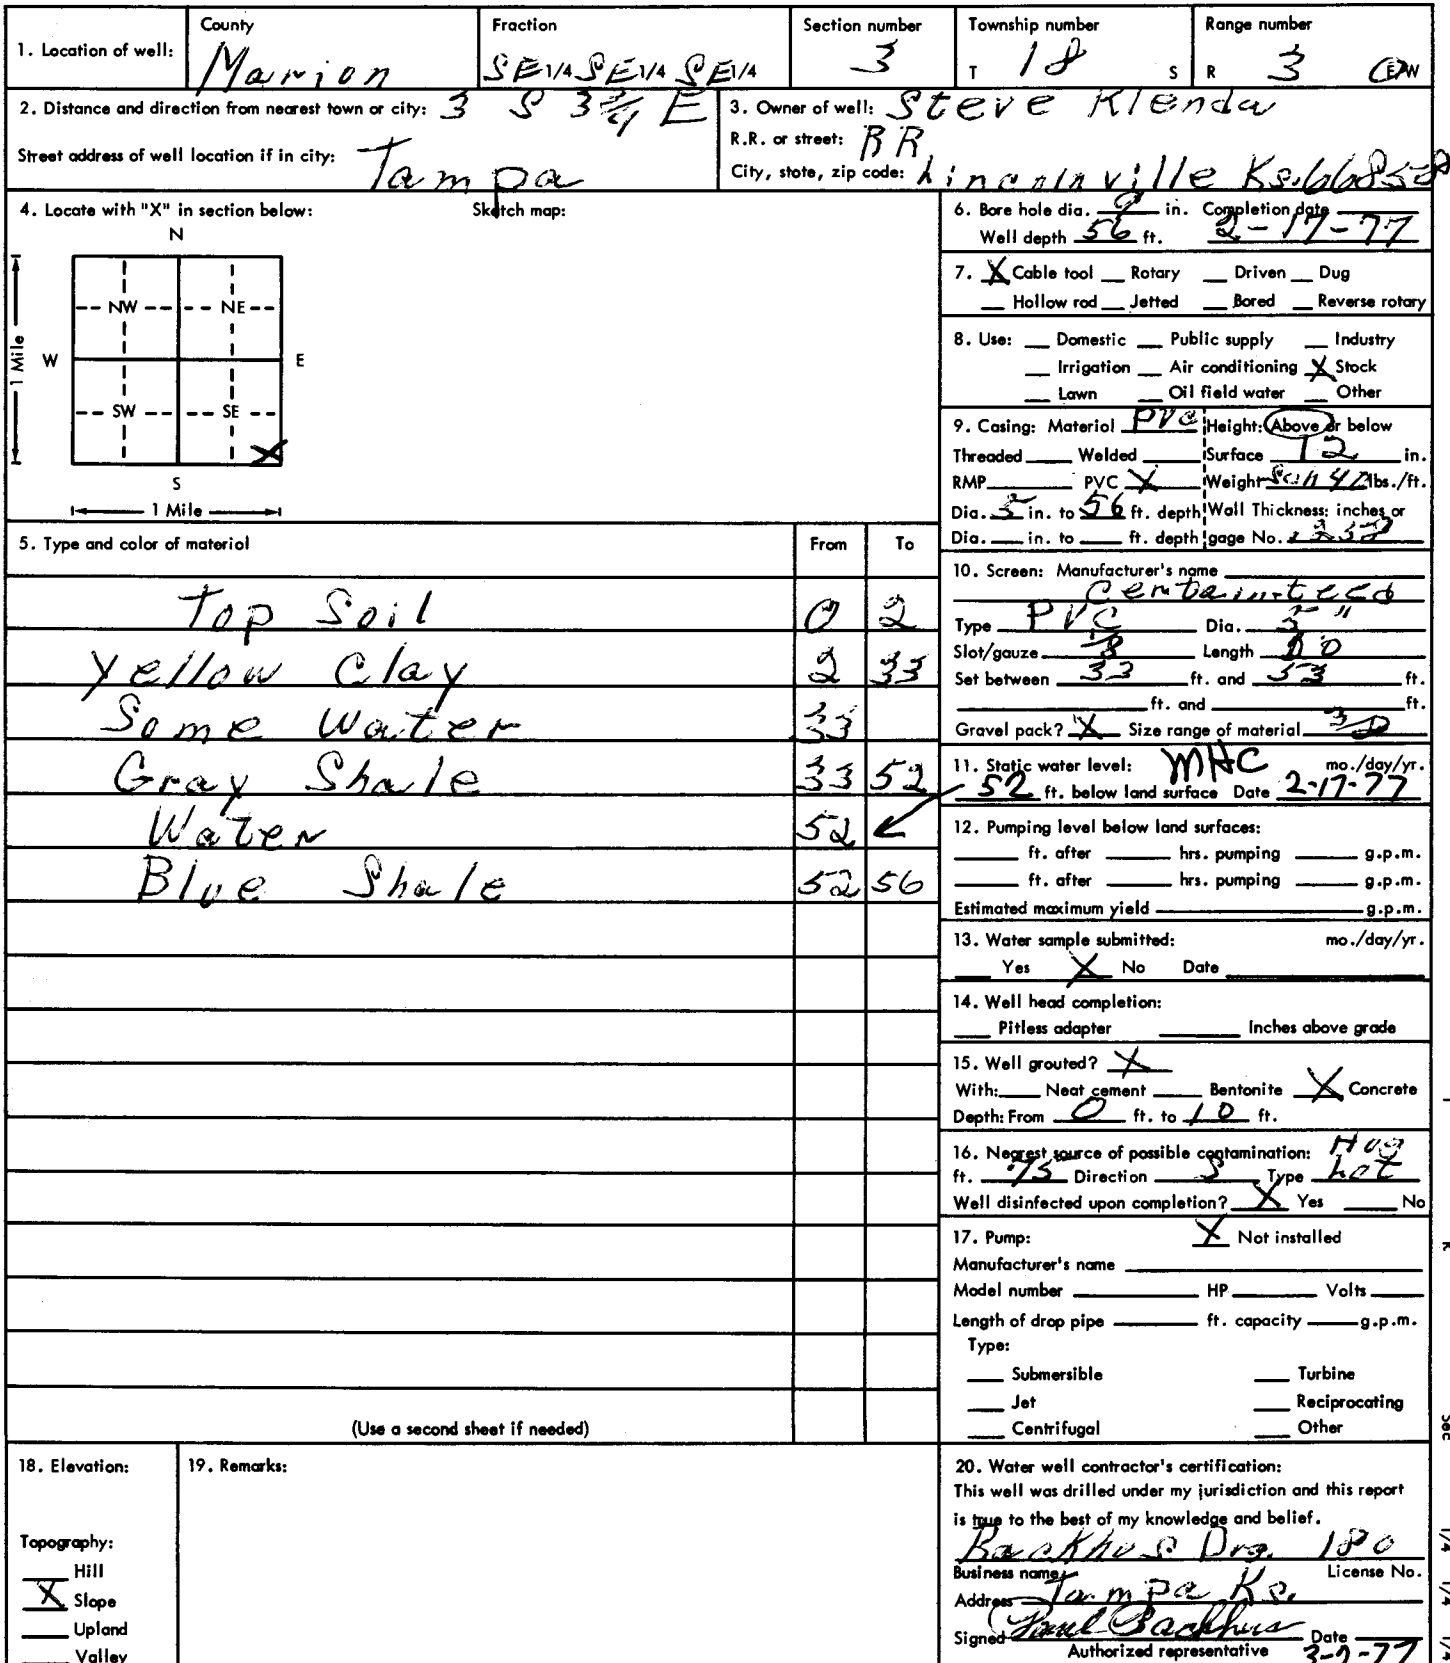 County Fraction Section number Township number Range number
1. Location of well: Marion SE 1/4 SE 1/4 SE 1/4 3 T 18 S R 3 E/W
2. Distance and direction from nearest town or city: 3 S 3 3/4 E
Street address of well location if in city: Tampa
3. Owner of well: Steve Klenda
R.R. or street: RR
City, state, zip code: Ks. 66858
4. Locate with "X" in section below: Sketch map:
N
NW NE
W E
1 Mile
SW SE
X
S
1 Mile
5. Type and color of material From To
Top Soil 0 2
Yellow Clay 2 33
Some Water 33
Gray Shale 33 52
Water 52
Blue Shale 52 56
(Use a second sheet if needed)
6. Bore hole dia. 9 in. Completion date
Well depth 56 ft. 2-17-77
7. X Cable tool __ Rotary __ Driven __ Dug
__ Hollow rod __ Jetted __ Bored __ Reverse rotary
8. Use: __ Domestic __ Public supply __ Industry
__ Irrigation __ Air conditioning X Stock
__ Lawn __ Oil field water __ Other
9. Casing: Material PVC Height: Above or below
Threaded __ Welded __ Surface 12 in.
RMP __ PVC X Weight Sch 40 lbs./ft.
Dia. 5 in. to 56 ft. depth Wall Thickness: inches or
Dia. __ in. to __ ft. depth gage No.
10. Screen: Manufacturer's name
Certainteed
Type PVC Dia. 5"
Slot/gauze 1/8 Length
Set between 33 ft. and 53 ft.
__ ft. and __ ft.
Gravel pack? X Size range of material
11. Static water level: MHC mo./day/yr.
52 ft. below land surface Date 2-17-77
12. Pumping level below land surfaces:
__ ft. after __ hrs. pumping __ g.p.m.
__ ft. after __ hrs. pumping __ g.p.m.
Estimated maximum yield __ g.p.m.
13. Water sample submitted: mo./day/yr.
__ Yes X No Date
14. Well head completion:
__ Pitless adapter __ Inches above grade
15. Well grouted? X
With: __ Neat cement __ Bentonite X Concrete
Depth: From 0 ft. to 10 ft.
16. Nearest source of possible contamination: Hog
ft. 75 Direction S Type Lot
Well disinfected upon completion? X Yes __ No
17. Pump: X Not installed
Manufacturer's name
Model number __ HP __ Volts __
Length of drop pipe __ ft. capacity __ g.p.m.
Type:
__ Submersible __ Turbine
__ Jet __ Reciprocating
__ Centrifugal __ Other
18. Elevation:
Topography:
__ Hill
X Slope
__ Upland
__ Valley
19. Remarks:
20. Water well contractor's certification:
This well was drilled under my jurisdiction and this report
is true to the best of my knowledge and belief.
Backhus Drg. 180
Business name License No.
Address Tampa Ks.
Signed Paul Backhus Date
Authorized representative 3-9-77
Sec
1/4 1/4 1/4